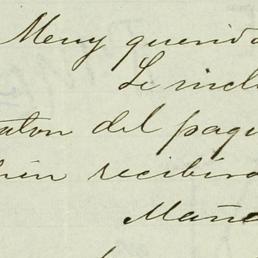 Muy querida
Le incl
aton del paqu
bién recibira
Maña